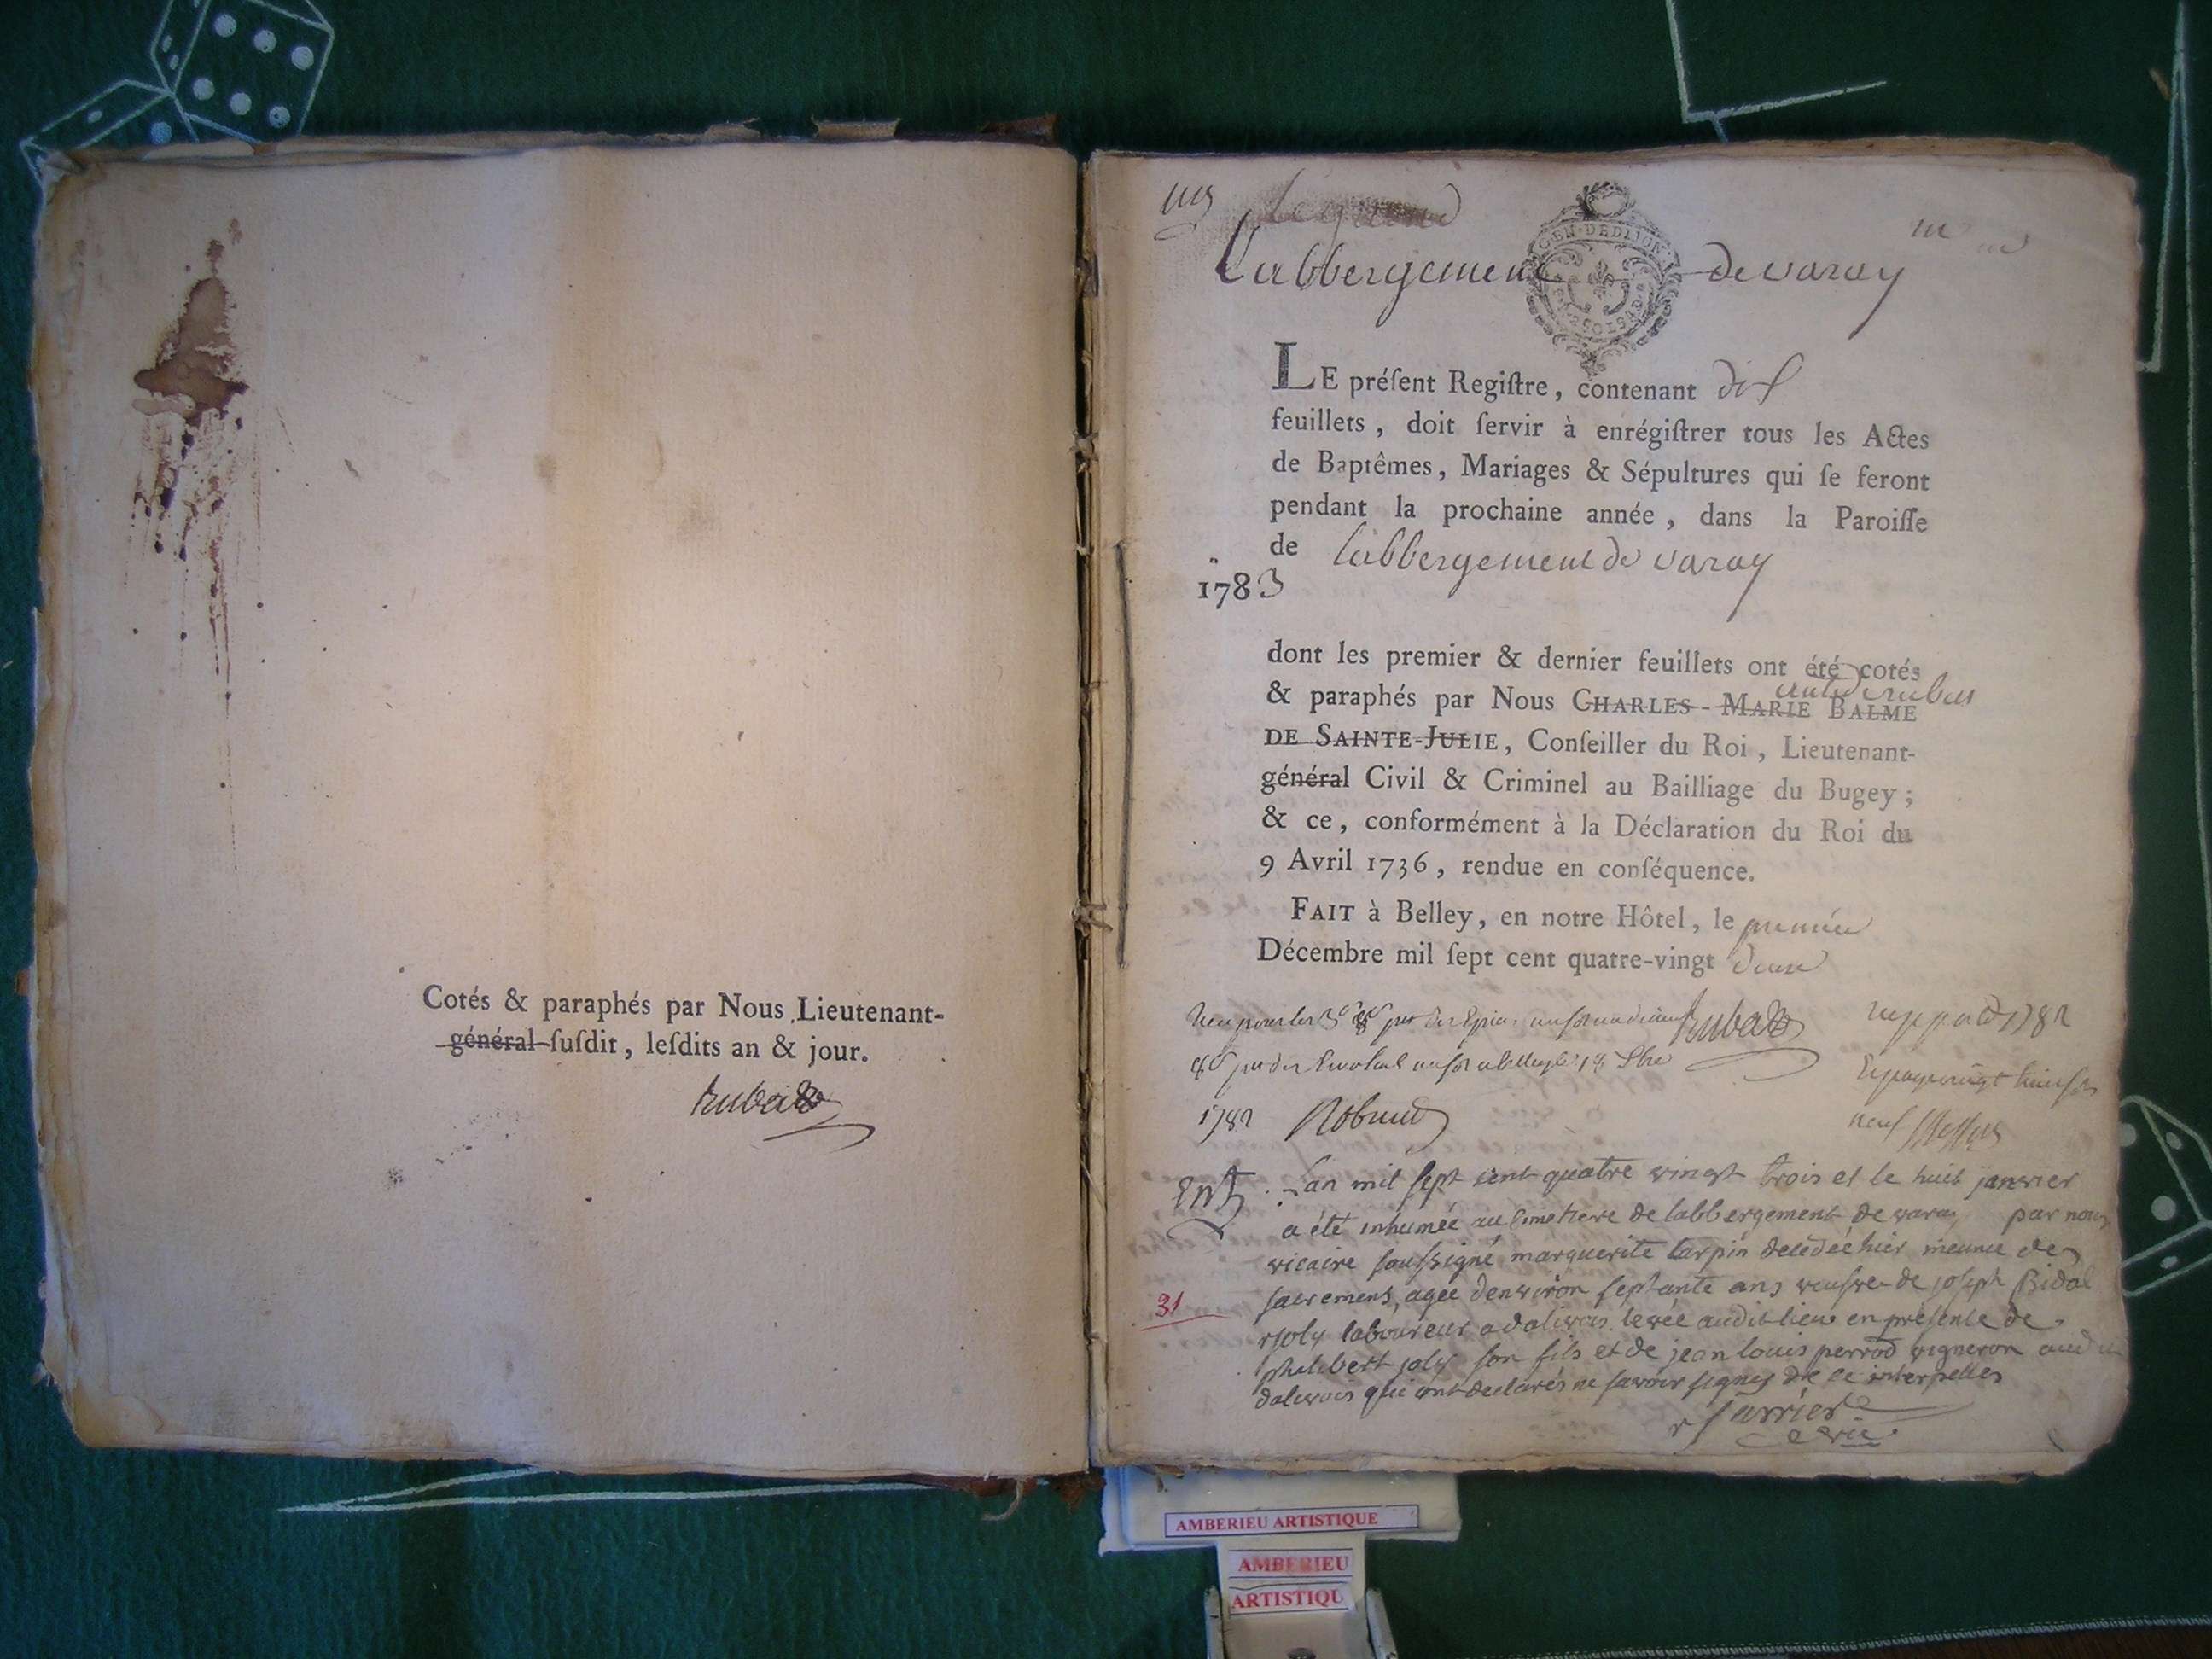 Cotés & paraphés par Nous Lieutenant-
général ſuſdit, leſdits an & jour.
Labbergement de varay
GEN. DE DIJON
LE préſent Regiſtre, contenant dix
feuillets, doit ſervir à enrégiſtrer tous les Actes
de Baptêmes, Mariages & Sépultures qui ſe feront
pendant la prochaine année, dans la Paroiſſe
de labbergement de varay
1783
dont les premier & dernier feuillets ont été cotés
& paraphés par Nous CHARLES-MARIE BALME
DE SAINTE-JULIE, Conſeiller du Roi, Lieutenant-
général Civil & Criminel au Bailliage du Bugey;
& ce, conformément à la Déclaration du Roi du
9 Avril 1736, rendue en conſéquence.
FAIT à Belley, en notre Hôtel, le premier
Décembre mil ſept cent quatre-vingt deux
1782
1782
Ent
Lan mil sept cent quatre vingt trois et le huit janvier
a été inhumée au Cimetiere de labbergement de varay par nous
vicaire soussigné marguerite tarpin decedée hier munie des
sacremens, agée denviron septante ans veufve de joseph Bidal
31
joly laboureur a dalivois levée audit lieu en présence de
philibert joly son fils et de jean louis perrod vigneron
dalivois qui ont declarés ne savoir signer de ce interpelles
Sarrier
vic.
AMBERIEU ARTISTIQUE
AMBERIEU
ARTISTIQU